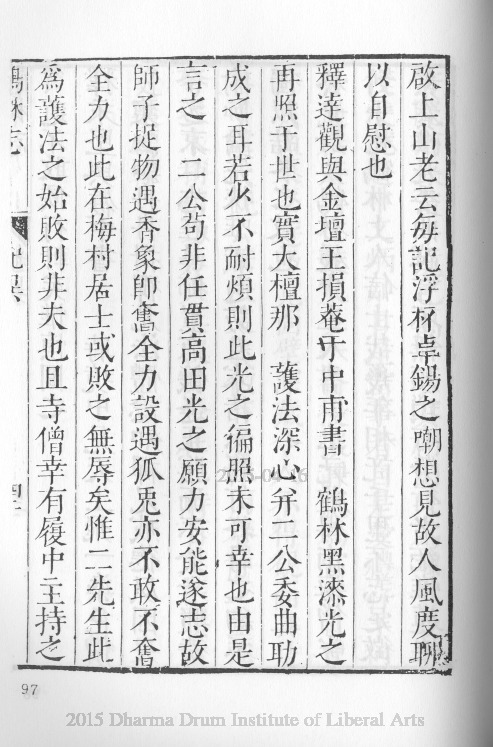 啟上山老云每記浮杯卓錫之嘲想見故人風度聊
以自慰也
釋達觀與金壇王損菴于中甫書　鶴林黑漆光之
再照于世也實大檀那　護法深心弁二公委曲助
成之耳若少不耐煩則此光之徧照未可幸也由是
言之　二公苟非任貫高田光之願力安能遂志故
師子捉物遇香象卽奮全力設遇狐兎亦不敢不奮
全力也此在梅村居士或敗之無辱矣惟二先生此
爲護法之始敗則非夫也且寺僧幸有履中主持之
鶴林志
97
2015 Dharma Drum Institute of Liberal Arts